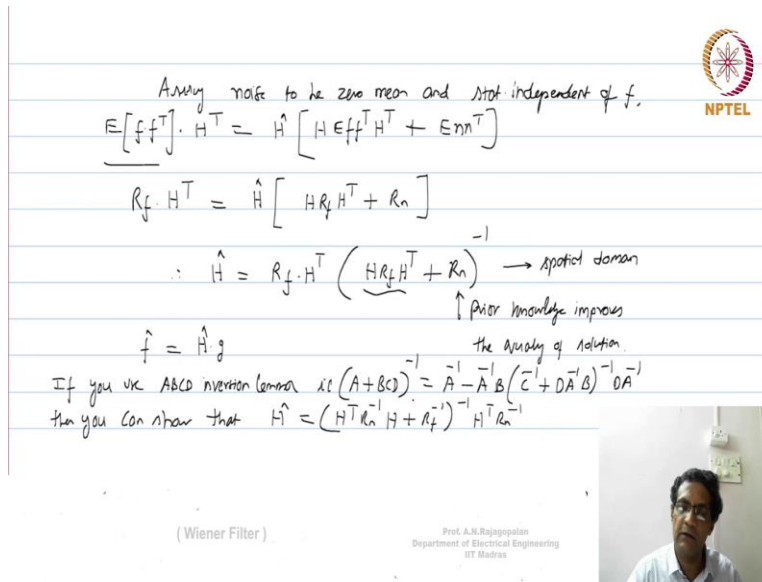 Assuming noise to be zero mean and stat. independent of f.
NPTEL
E[ffᵀ]·Hᵀ = Ĥ [H EffᵀHᵀ + Ennᵀ]
R_f·Hᵀ = Ĥ [HR_fHᵀ + R_n]
∴ Ĥ = R_f·Hᵀ (HR_fHᵀ + R_n)⁻¹ → spatial domain
↑ Prior knowledge improves
the quality of solution.
f̂ = Ĥ·g
If you use ABCD inversion lemma ie (A+BCD)⁻¹ = A⁻¹ - A⁻¹B(C⁻¹ + DA⁻¹B)⁻¹DA⁻¹
then you can show that Ĥ = (HᵀR_n⁻¹H + R_f⁻¹)⁻¹ HᵀR_n⁻¹
( Wiener Filter )
Prof. A.N.Rajagopalan
Department of Electrical Engineering
IIT Madras